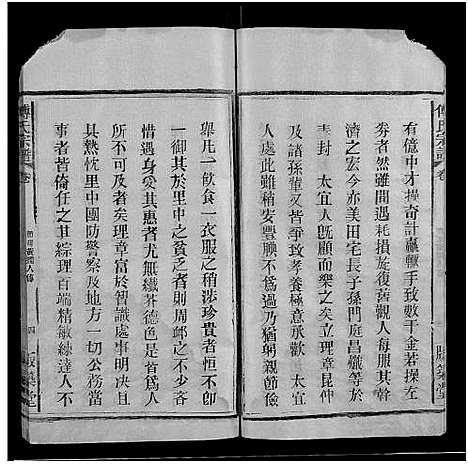 傅氏宗譜
卷
版築堂
有億中才操奇計贏轉手致數千金若操左
劵者然雖間遇耗損旋復舊觀人每服其幹
濟之宏今亦美田宅長子孫門庭昌熾等於
素封 太宜人顧而樂之矣立理章昆仲
及諸孫輩又皆孝養極意承歡 太宜
人處此雖稍安豐腴不以過乃猶躬親節儉
舉凡一飲食一衣服之稍涉珍貴者恒不卽
御其於里中之貧乏者則周卹之不少吝
惜遇身有喜者尤無纖芥德色是皆爲人
所不可及者矣理章富於智識處事明决且
具熱忱里中團防警察及地方一切公務當
事者皆倚任之其綜理百端精敏練達人不
傅氏宗譜
卷
四
版築堂